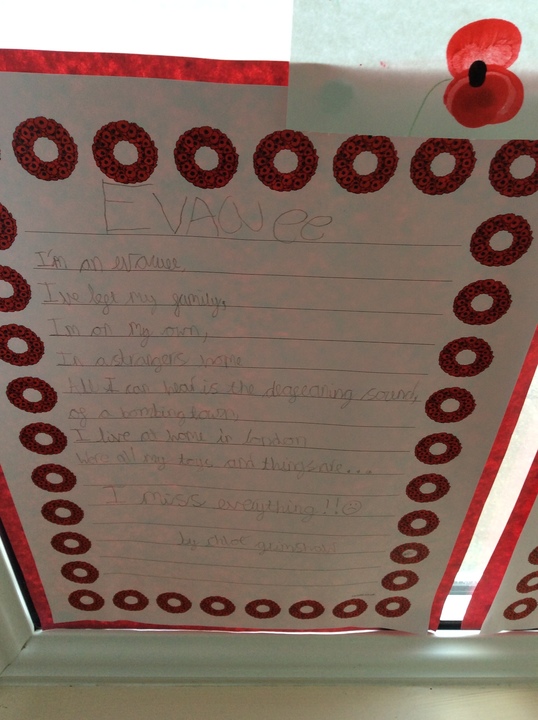 EVAcuee
I'm an evacuee,
I've left my family,
I'm on my own,
In a strangers home
All I can hear is the deageaning sound,
of a bombing town,
I live at home in london
Were all my toys and things are...
I miss everything!!☹
by chloe grimshaw